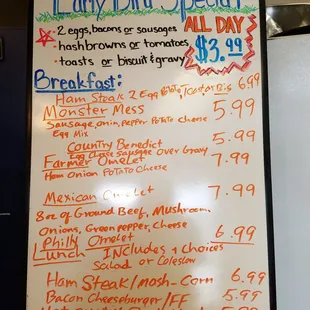 Early Bird Special
ALL DAY
$3.99
• 2 eggs, bacons or sausages
• hashbrowns or tomatoes
• toasts or biscuit & gravy
Breakfast:
Ham Steak 2 Egg Potato, Toast or Bis 6.99
Monster Mess 5.99
Sausage, onion, pepper Potato Cheese
Egg Mix
Country Benedict 5.99
Egg Cheese Sausage Over Gravy
Farmer Omelet 7.99
Ham Onion Potato Cheese
Mexican Omelet 7.99
8oz of Ground Beef, Mushroom,
Onions, Green pepper, Cheese
Philly Omelet 6.99
Lunch INCludes 2 Choices
Salad or Coleslaw
Ham Steak/mash-Corn 6.99
Bacon Cheeseburger/FF 5.99